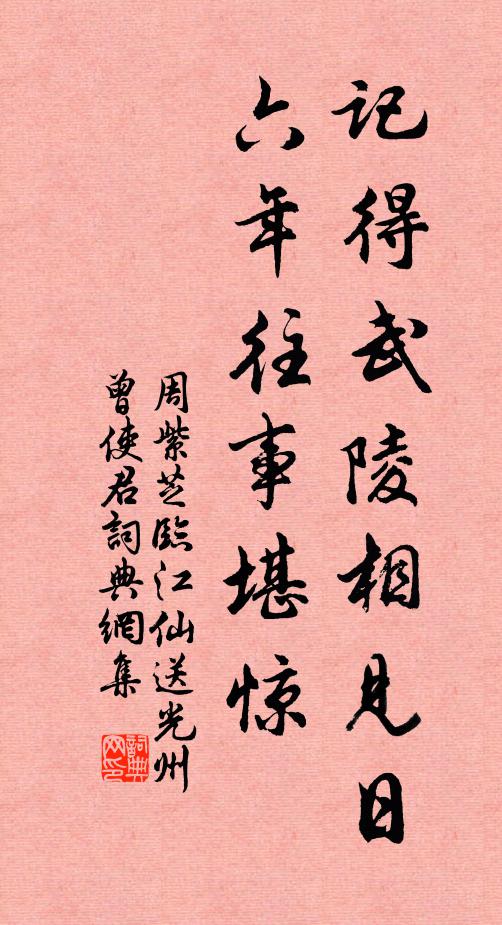 记得武陵相见日
六年往事堪惊
周紫芝临江仙送光州
曾使君词典网集
詞典
网印